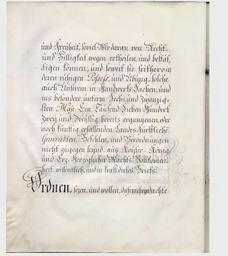 und Freiheit, soviel Wir daran von Recht-
und Billigkeit wegen ertheilen, und bestät-
tigen können, und soweit sie seithero in
deren ruhigen Possess, und Übung, solche
auch Unseren in Handwerks-Sachen, und
ins besondere unterm Sechs und Zwanzig-
sten May Ein Tausend Sieben Hundert
Zwey und Dreyßig bereits ergangenen, oder
noch künftig erfolgenden Landes-Fürstliche
Generalien, Befehlen, und Verordnungen
nicht zugegen seynd, aus Kayser- König
und Erz-Herzoglicher Macht Vollkommen-
heit, wissentlich, und in Kraft dieses Briefs.
Ordnen, sezen, und wollen, daß mehrgedachte